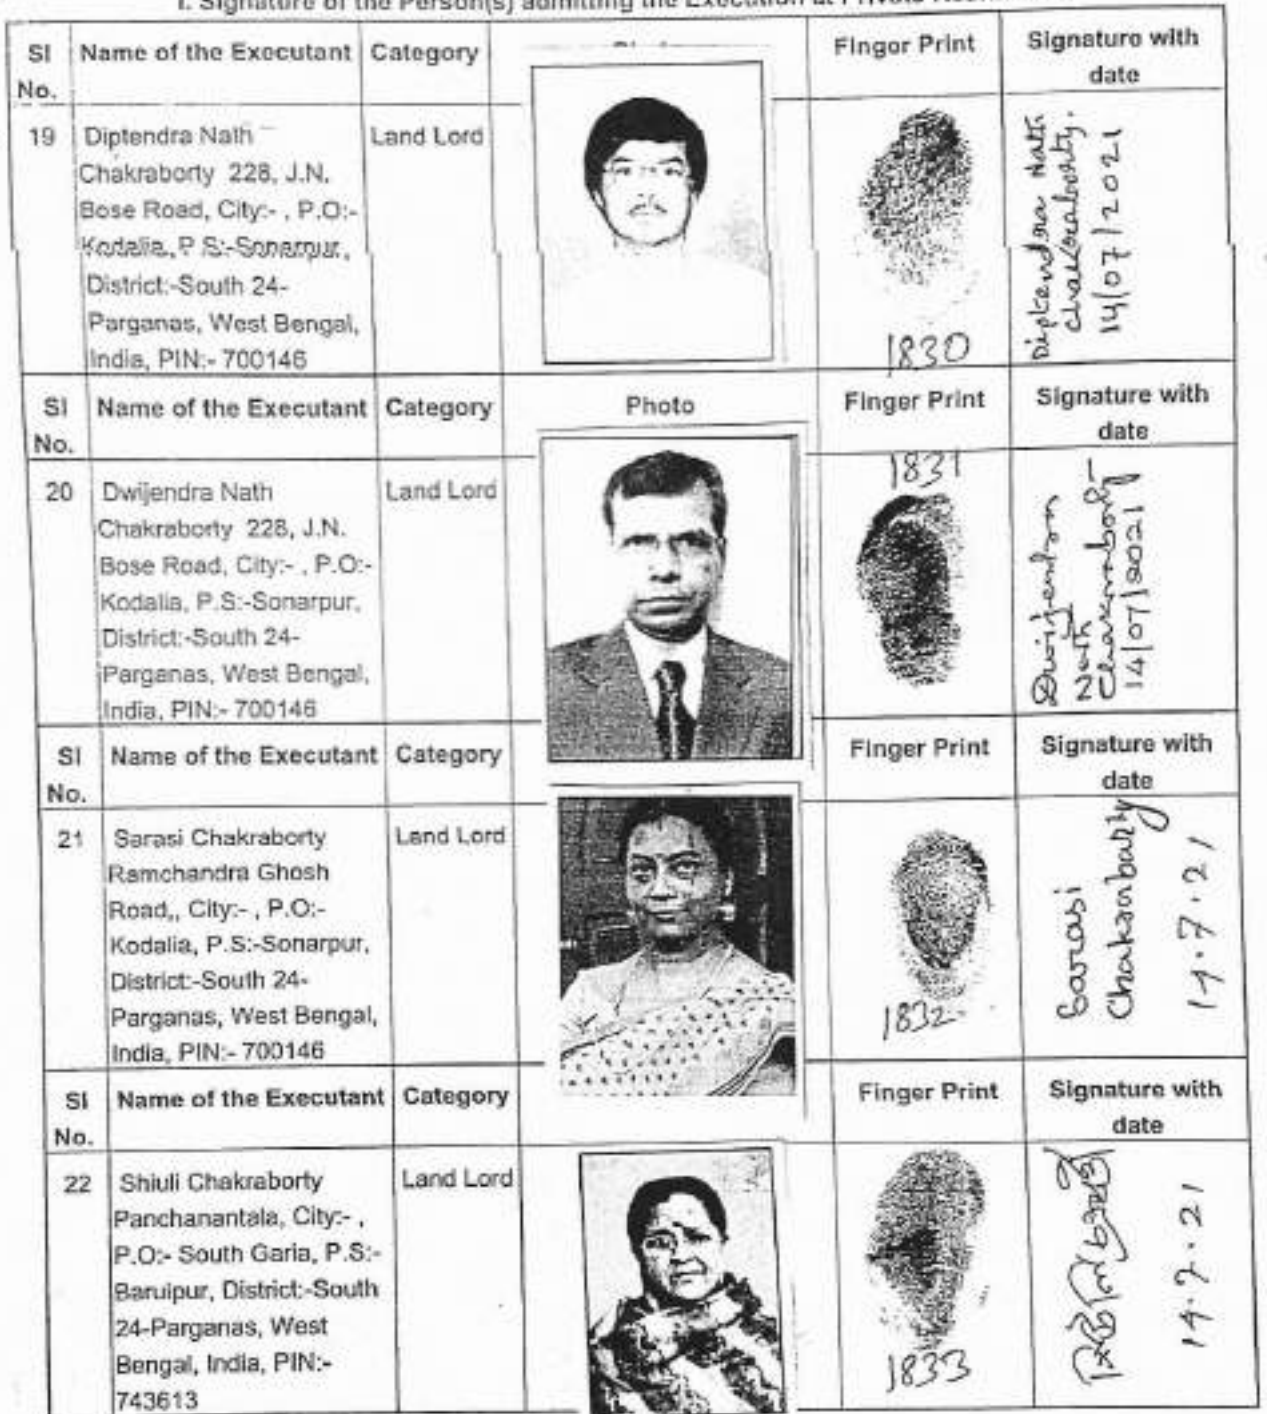 I. Signature of the Person(s) admitting the Execution at Private
SI No. Name of the Executant Category Finger Print Signature with date
19 Diptendra Nath
Chakraborty 228, J.N.
Bose Road, City:- , P.O:-
Kodalia, P.S:-Sonarpur,
District:-South 24-
Parganas, West Bengal,
India, PIN:- 700146
Land Lord
1830
Diptendra Nath
Chakraborty.
14/07/2021
SI No. Name of the Executant Category Photo Finger Print Signature with date
20 Dwijendra Nath
Chakraborty 228, J.N.
Bose Road, City:- , P.O:-
Kodalia, P.S:-Sonarpur,
District:-South 24-
Parganas, West Bengal,
India, PIN:- 700146
Land Lord
1831
Dwijendra
Nath
Chakraborty
14/07/2021
SI No. Name of the Executant Category Finger Print Signature with date
21 Sarasi Chakraborty
Ramchandra Ghosh
Road,, City:- , P.O:-
Kodalia, P.S:-Sonarpur,
District:-South 24-
Parganas, West Bengal,
India, PIN:- 700146
Land Lord
1832
Sarasi
Chakraborty
14.7.21
SI No. Name of the Executant Category Finger Print Signature with date
22 Shiuli Chakraborty
Panchanantala, City:- ,
P.O:- South Garia, P.S:-
Baruipur, District:-South
24-Parganas, West
Bengal, India, PIN:-
743613
Land Lord
1833
14.7.21